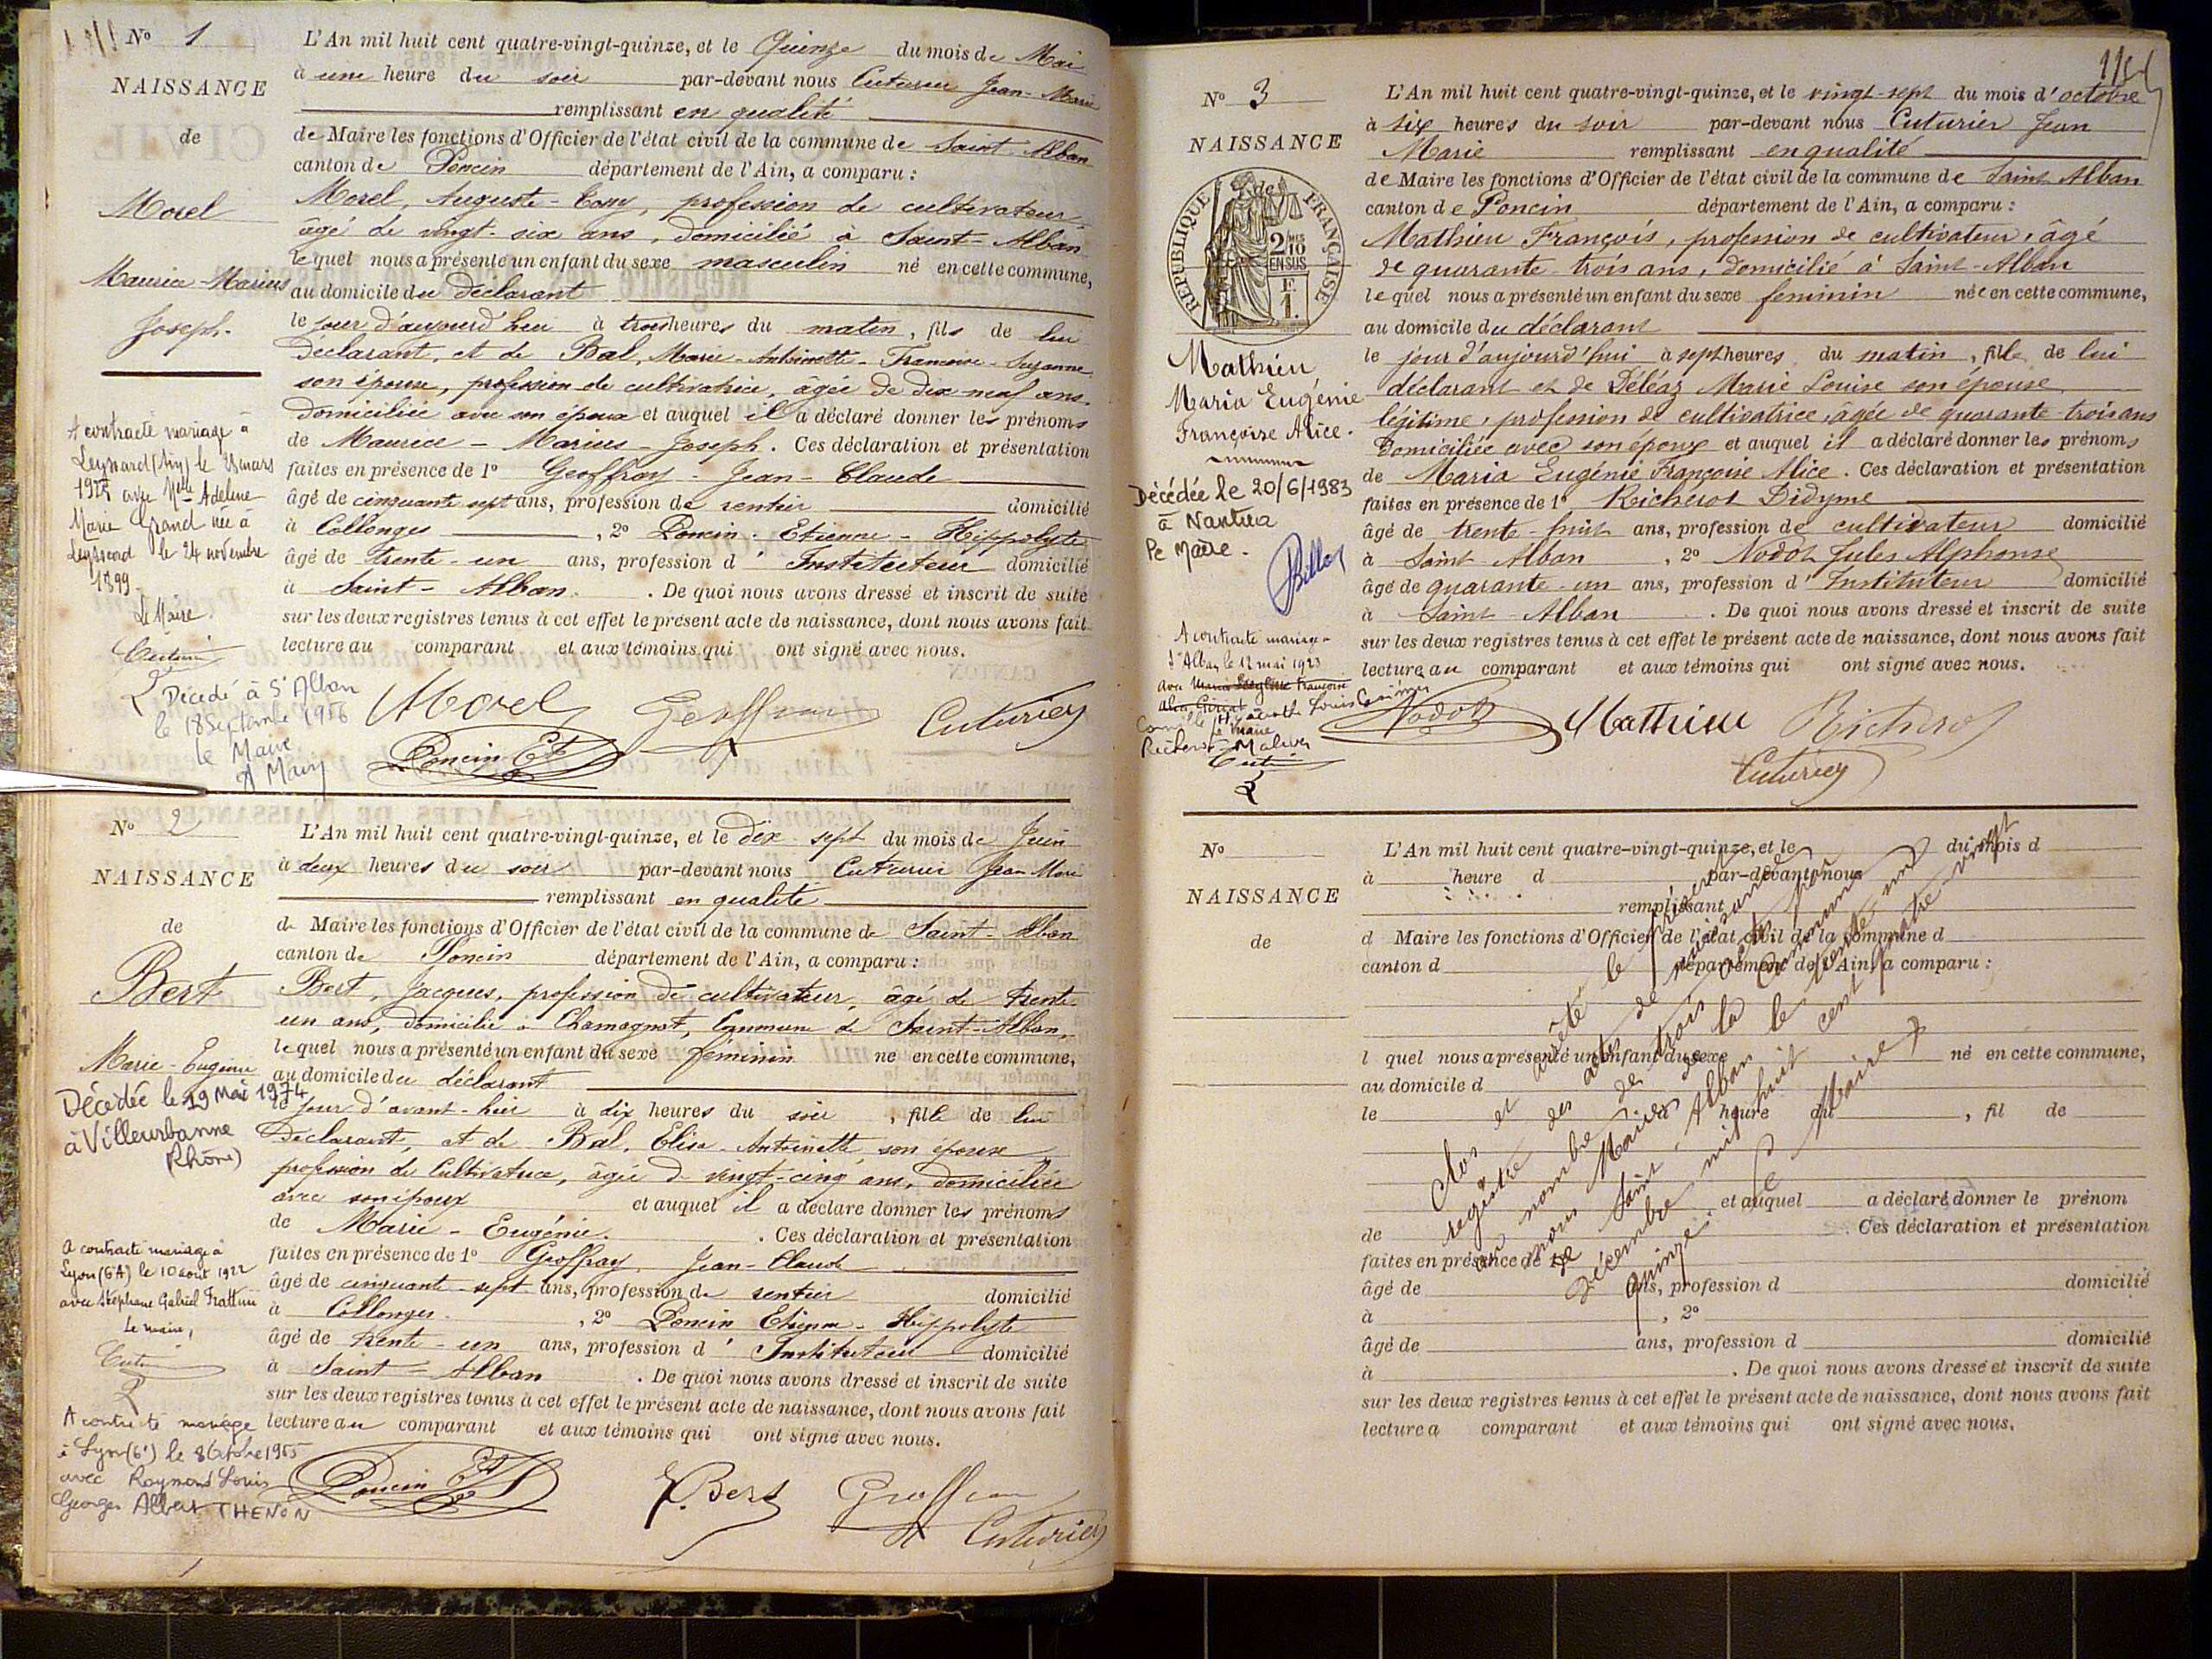 N° 1
NAISSANCE
de
Morel
Maurice-Marius
Joseph.
A contracté mariage à
Leyssard (Ain) le 28 mars
avec Melle Adeline
Marie Grand née à
Leyssard le 24 novembre
1899.
Le Maire
Décédé à St Alban
le 18 Septembre 1956
le Maire
L'An mil huit cent quatre-vingt-quinze, et le Quinze du mois de Mai
à une heure du soir par-devant nous Cuturier Jean-Marie
remplissant en qualité
de Maire les fonctions d'Officier de l'état civil de la commune de Saint-Alban
canton de Poncin département de l'Ain, a comparu :
Morel, Auguste-Tony, profession de cultivateur,
âgé de vingt-six ans, domicilié à Saint-Alban
lequel nous a présenté un enfant du sexe masculin né en cette commune,
au domicile du déclarant
le jour d'aujourd'hui à trois heures du matin, fils de lui
déclarant, et de Bal, Marie-Antoinette-Francoise-Suzanne
son épouse, profession de cultivatrice, âgée de dix-neuf ans.
domiciliée avec son époux et auquel il a déclaré donner les prénoms
de Maurice - Marius - Joseph. Ces déclaration et présentation
faites en présence de 1° Geoffray - Jean-Claude
âgé de cinquante sept ans, profession de rentier domicilié
à Collonges, 2° Poncin - Etienne - Hippolyte
âgé de trente-un ans, profession d'Instituteur domicilié
à Saint-Alban. De quoi nous avons dressé et inscrit de suite
sur les deux registres tenus à cet effet le présent acte de naissance, dont nous avons fait
lecture au comparant et aux témoins qui ont signé avec nous.
Morel Geoffray Cuturier
Poncin Et
N° 2
NAISSANCE
de
Bert
Marie-Eugénie
Décédée le 19 Mai 1974
à Villeurbanne
Rhône)
a contracté mariage à
Lyon (6A) le 10 août 1922
avec Stéphane Gabriel Frattini
Le maire,
A contracté mariage
à Lyon (6e) le 8 Octobre 1955
avec Raymond Louis
Georges Albert THENON
L'An mil huit cent quatre-vingt-quinze, et le dix-sept du mois de Juin
à deux heures du soir par-devant nous Cuturier Jean Marie
remplissant en qualité
de Maire les fonctions d'Officier de l'état civil de la commune de Saint-Alban
canton de Poncin département de l'Ain, a comparu :
Bert, Jacques, profession de cultivateur, âgé de trente-
un ans, domicilié à Chamagnat, Commune de Saint-Alban,
lequel nous a présenté un enfant du sexe féminin né en cette commune,
au domicile du déclarant
le jour d'avant-hier à dix heures du soir, fille de lui
Déclarant, et de Bal, Elisa-Antoinette son épouse
profession de Cultivatrice, âgée de vingt-cinq ans, domiciliée
avec son époux et auquel il a déclaré donner les prénoms
de Marie - Eugénie. Ces déclaration et présentation
faites en présence de 1° Geoffray, Jean-Claude
âgé de cinquante-sept ans, profession de rentier domicilié
à Collonges, 2° Poncin Etienne-Hippolyte
âgé de trente-un ans, profession d'Instituteur domicilié
à Saint-Alban. De quoi nous avons dressé et inscrit de suite
sur les deux registres tenus à cet effet le présent acte de naissance, dont nous avons fait
lecture au comparant et aux témoins qui ont signé avec nous.
Poncin Et Bert Geoffray
Cuturier
N° 3
NAISSANCE
de
RÉPUBLIQUE FRANÇAISE
2/10 EN SUS
F. 1.
Mathieu
Maria Eugénie
Françoise Alice.
Décédée le 20/6/1983
à Nantua
Le Maire.
A contracté mariage
St Alban le 12 mai 1923
L'An mil huit cent quatre-vingt-quinze, et le vingt-sept du mois d'octobre
à six heures du soir par-devant nous Cuturier Jean
Marie remplissant en qualité
de Maire les fonctions d'Officier de l'état civil de la commune de Saint Alban
canton de Poncin département de l'Ain, a comparu :
Mathieu François, profession de cultivateur, âgé
de quarante-trois ans, domicilié à Saint-Alban
lequel nous a présenté un enfant du sexe feminin née en cette commune,
au domicile du déclarant
le jour d'aujourd'hui à sept heures du matin, fille de lui
déclarant et de Déléaz Marie Louise son épouse
légitime, profession de cultivatrice, âgée de quarante trois ans
Domiciliée avec son époux et auquel il a déclaré donner les prénoms
de Maria Eugénie Françoise Alice. Ces déclaration et présentation
faites en présence de 1° Richerot Didyme
âgé de trente-huit ans, profession de cultivateur domicilié
à Saint Alban, 2° Nodot Jules Alphonse
âgé de quarante-un ans, profession d'Instituteur domicilié
à Saint-Alban. De quoi nous avons dressé et inscrit de suite
sur les deux registres tenus à cet effet le présent acte de naissance, dont nous avons fait
lecture au comparant et aux témoins qui ont signé avec nous.
Nodot Mathieu Richerot
Cuturier
N°
NAISSANCE
de
L'An mil huit cent quatre-vingt-quinze, et le du mois d
à heure d par-devant nous
remplissant
d Maire les fonctions d'Officier de l'état civil de la commune d
canton d département de l'Ain, a comparu :
l quel nous a présenté un enfant du sexe né en cette commune,
au domicile d
le à heure du , fil de
et auquel a déclaré donner le prénom
de . Ces déclaration et présentation
faites en présence de 1°
âgé de ans, profession d domicilié
à , 2°
âgé de ans, profession d domicilié
à . De quoi nous avons dressé et inscrit de suite
sur les deux registres tenus à cet effet le présent acte de naissance, dont nous avons fait
lecture a comparant et aux témoins qui ont signé avec nous.
Clos et arrêté le présent
registre des actes de naissance
au nombre de trois
nous Maire de la Commune
de Saint-Alban le trente un
décembre mil huit cent quatre-vingt
quinze.
Le Maire